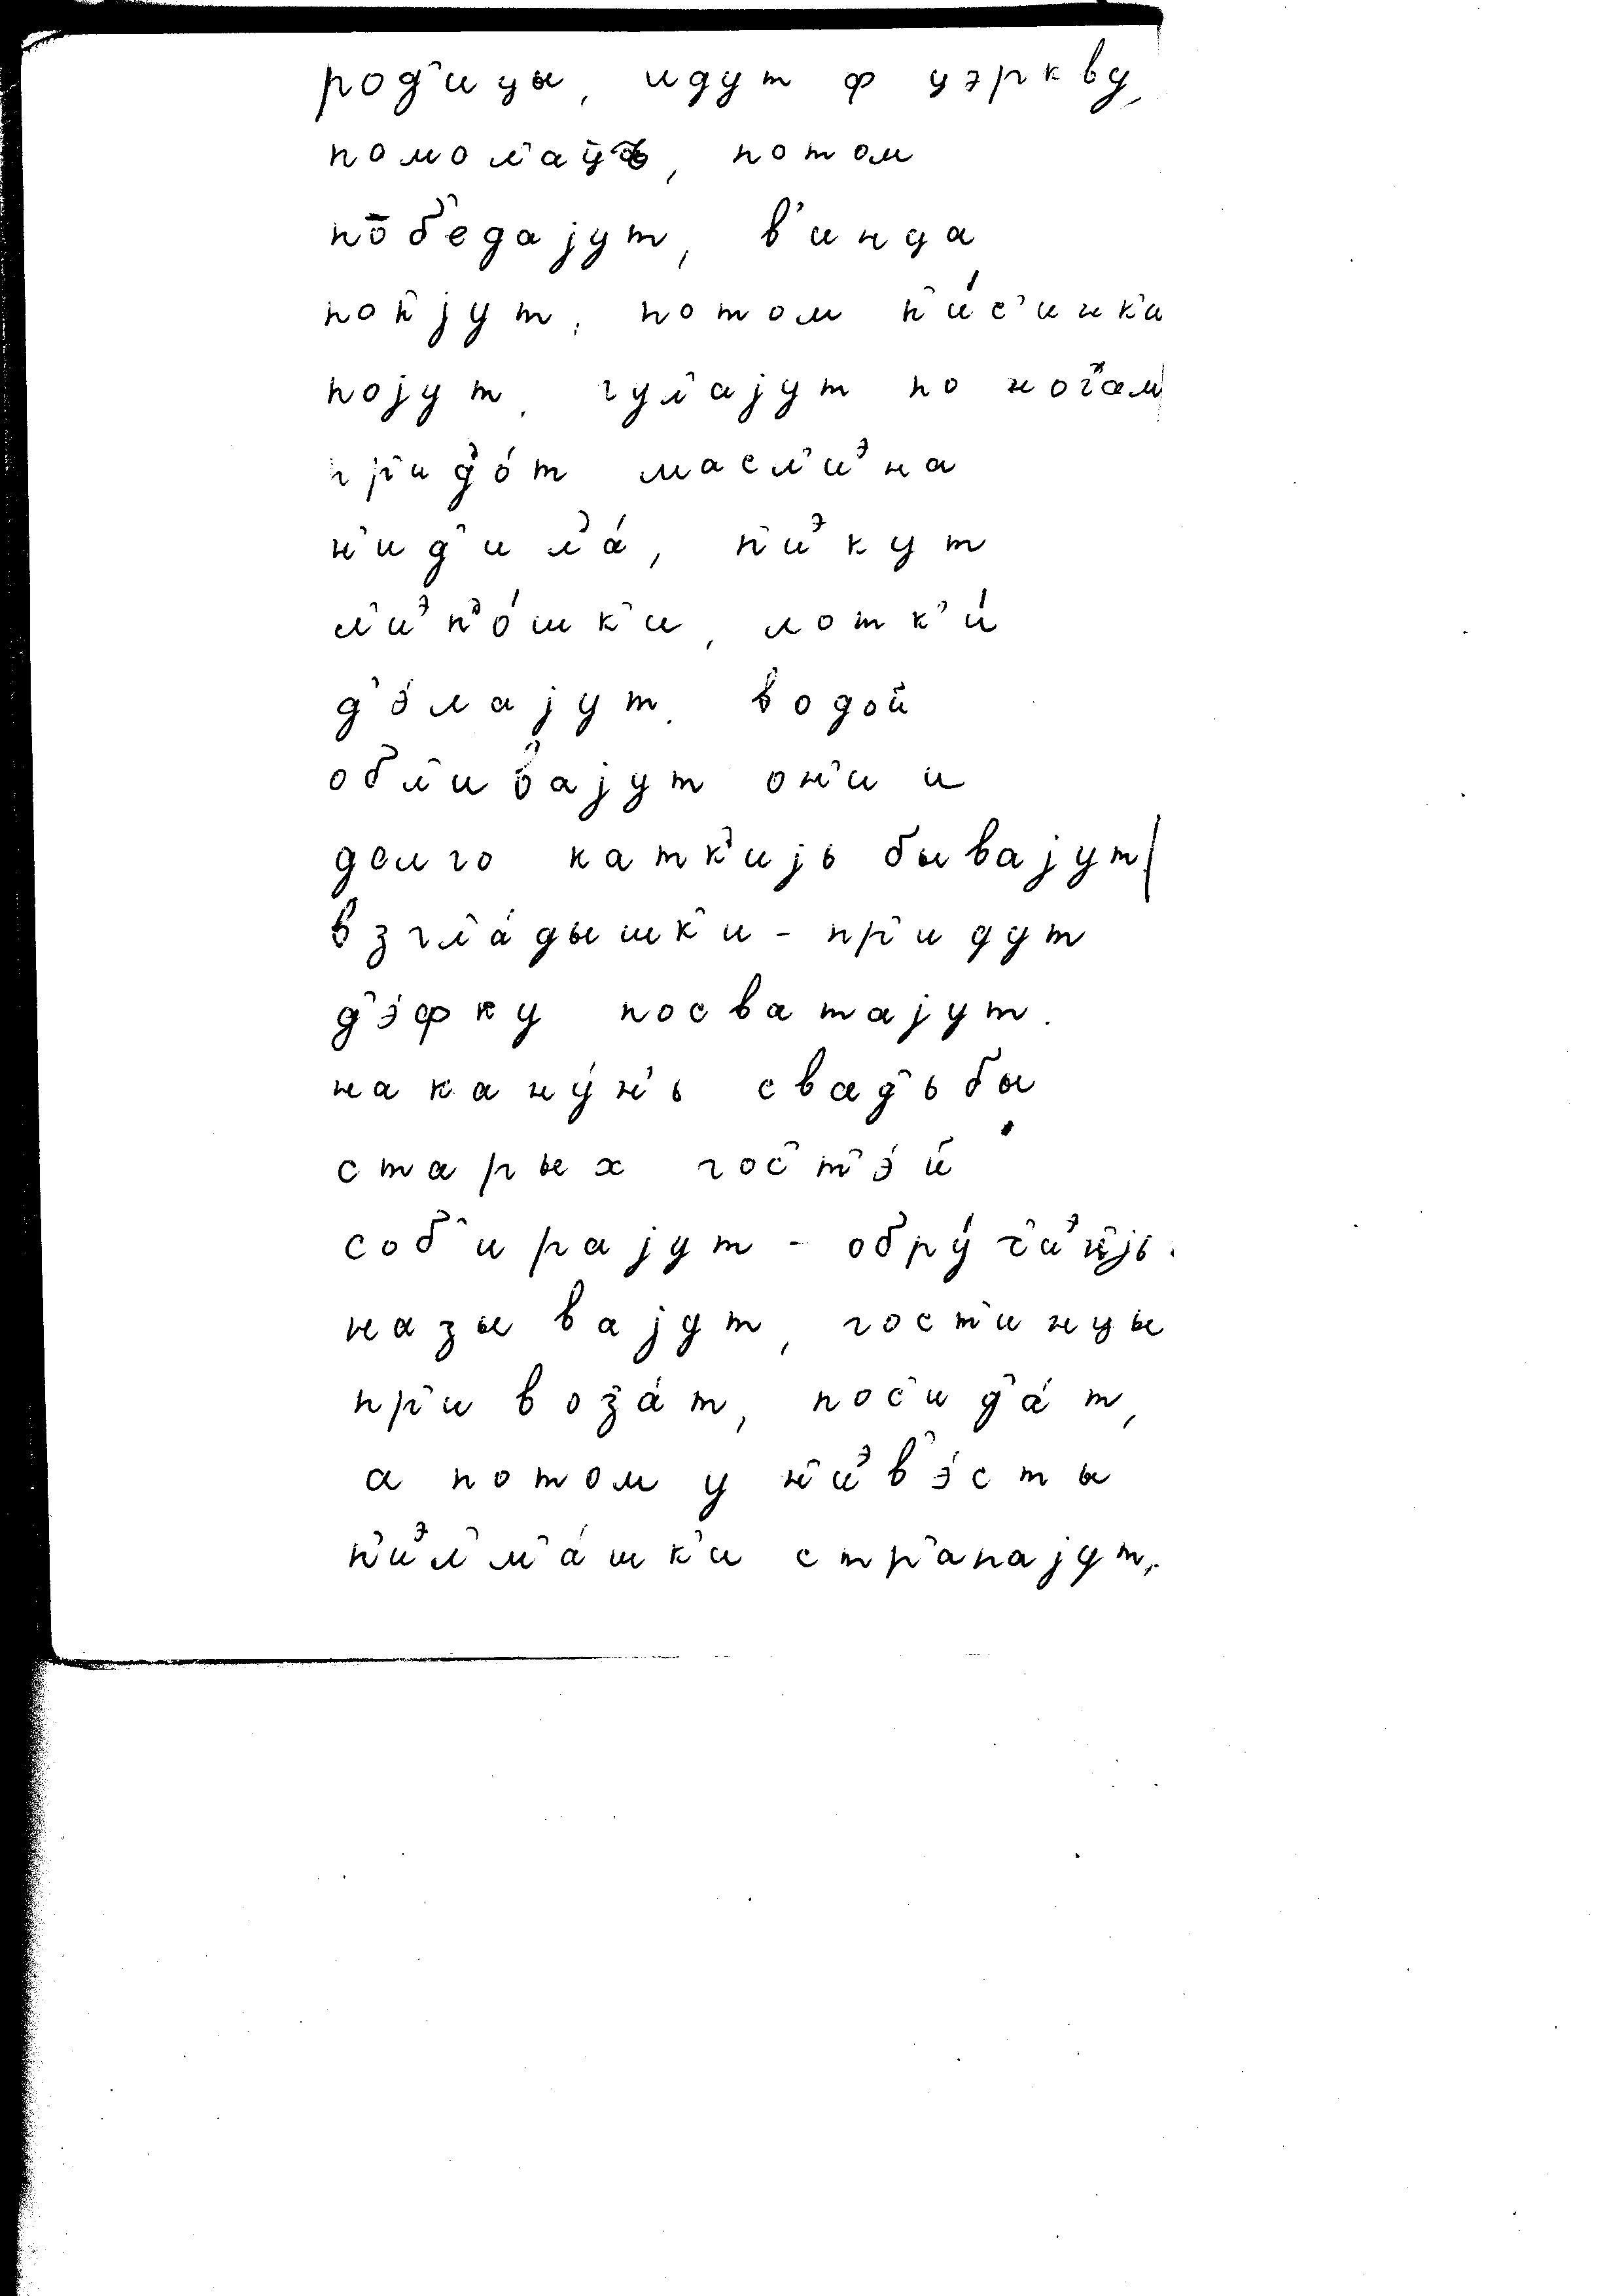 род'ицы, идут ф цэркву,
помол'аџъ, потом
поб'едајут, в'инца
поп'јут, потом п'и́с'инк'и
појут, гул'ајут по ноч'ам
пр'ид'о́т масл'иэна
н'ид'ил'а́, п'иэкут
л'иэп'о́шк'и, лотк'и́
д'э́лајут, водой
обл'ивајут он'и и
долго катк'ијь бывајут
взгл'а́дышк'и - пр'идут
д'э́фку посватајут.
накану́н'ь свад'ьбы
старых гос'т'э́й
соб'ирајут - обру́ч'иэн'јь
называјут, гост'инцы
пр'ивоз'а́т, пос'ид'а́т,
а потом у н'иэв'э́сты
п'иэл'м'а́шк'и стр'апајут,